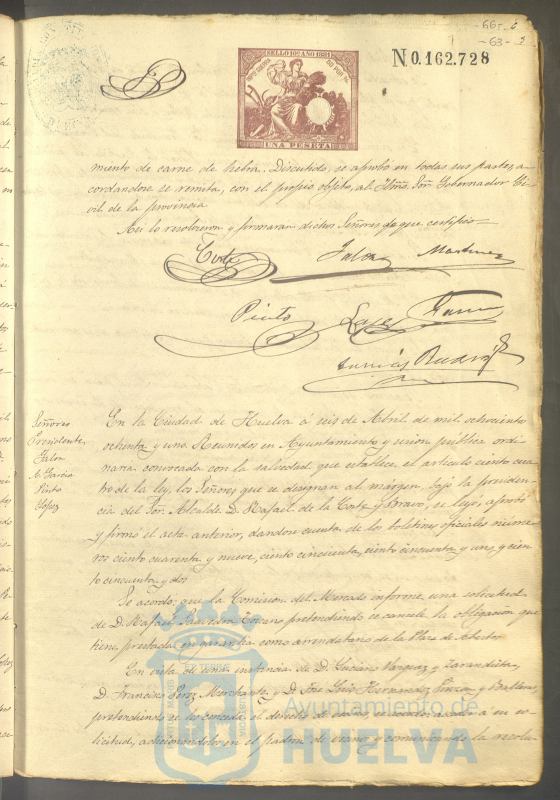 -66- 6
-63- 3
SELLO 10º AÑO 1881
UNA PESETA
N 0.162.728
miento de carne de hebra. Discutido, se aprobó en todas sus partes, a-
cordandose se remita, con el propio objeto, al Iltmo. Sor. Gobernador Ci-
vil de la provincia
Asi lo resolvieron y firmaran dichos Señores de que certifico=
Corte Jalon Martinez
Pinto Lopez Garcia
Señores
Presidente
Jalon
A. Garcia
Pinto
Lopez
En la Ciudad de Huelva á seis de Abril de mil ochociento
ochenta y uno. Reunidos en Ayuntamiento y sesion publica ordi-
naria convocada con la salvedad que establece el articulo ciento cua-
tro de la ley, los Señores que se designan al márgen, bajo la presiden-
cia del Sor. Alcalde D. Rafael de la Corte y Bravo, se leyó, aprobó
y firmó el acta anterior, dandose cuenta de los boletines oficiales núme-
ros ciento cuarenta y nueve, ciento cincuenta, ciento cincuenta y uno, y cien-
to cincuenta y dos
Se acordó: que la Comision del Mercado informe una solicitud
de D. Rafael Saavedra Toscano pretendiendo se cancele la obligacion que
tiene prestada en garantia como arrendatario de la Plaza de Abastos
En vista de una instancia de D. Luciano Vazquez y Zarandieta,
D. Francisco Perez Marchante y D. José Luis Hernandez Pinzon y
pretendiendo se les conceda el derecho de vecinos se acordó acceder á su so-
licitud, adicionandolos en el padron de vecinos y comunicando la resolu-
Ayuntamiento de
HUELVA